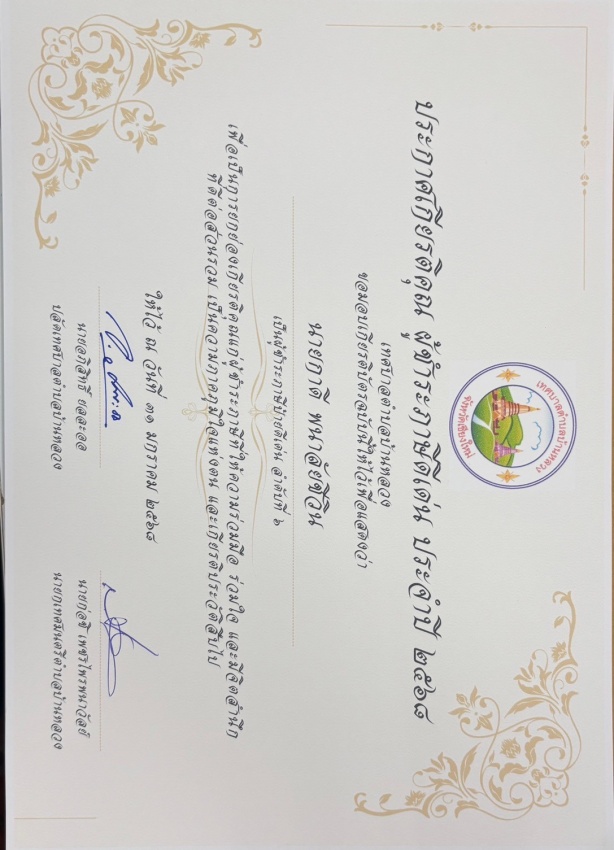 เทศบาลตำบลบ้านหลวง
จังหวัดเชียงใหม่
ประกาศเกียรติคุณ ผู้ชำระภาษีดีเด่น ประจำปี ๒๕๖๘
เทศบาลตำบลบ้านหลวง
ขอมอบเกียรติบัตรฉบับนี้ให้ไว้เพื่อแสดงว่า
นายภาดี พนาลัยชีวิน
เป็นผู้ชำระภาษีป้ายดีเด่น ลำดับที่ ๖
เพื่อเป็นการยกย่องเกียรติคุณแก่ผู้ชำระภาษีที่ให้ความร่วมมือ ร่วมใจ และมีจิตสำนึก
ที่ดีต่อส่วนรวม เป็นความภาคภูมิใจแห่งตน และเกียรติประวัติสืบไป
ให้ไว้ ณ วันที่ ๓๑ มกราคม ๒๕๖๘
นายอภิสิทธิ์ ยละออ
ปลัดเทศบาลตำบลบ้านหลวง
นายก่อซี เพชรไพรพนาวัลย์
นายกเทศมนตรีตำบลบ้านหลวง